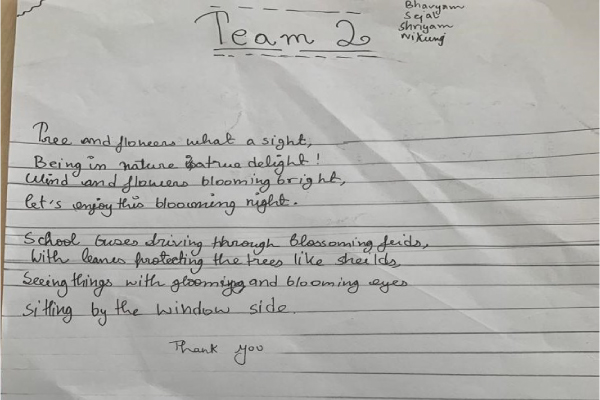 Team 2
Bhavyam
Sejal
Shriyam
Nikunj
Tree and flowers what a sight,
Being in nature is a true delight!
Wind and flowers blooming bright,
let's enjoy this bloowming night.
School buses driving through blossoming feids,
With leaves protecting the trees like sheilds,
Seeing things with glooming and blooming eyes
Sitting by the window side.
Thank you